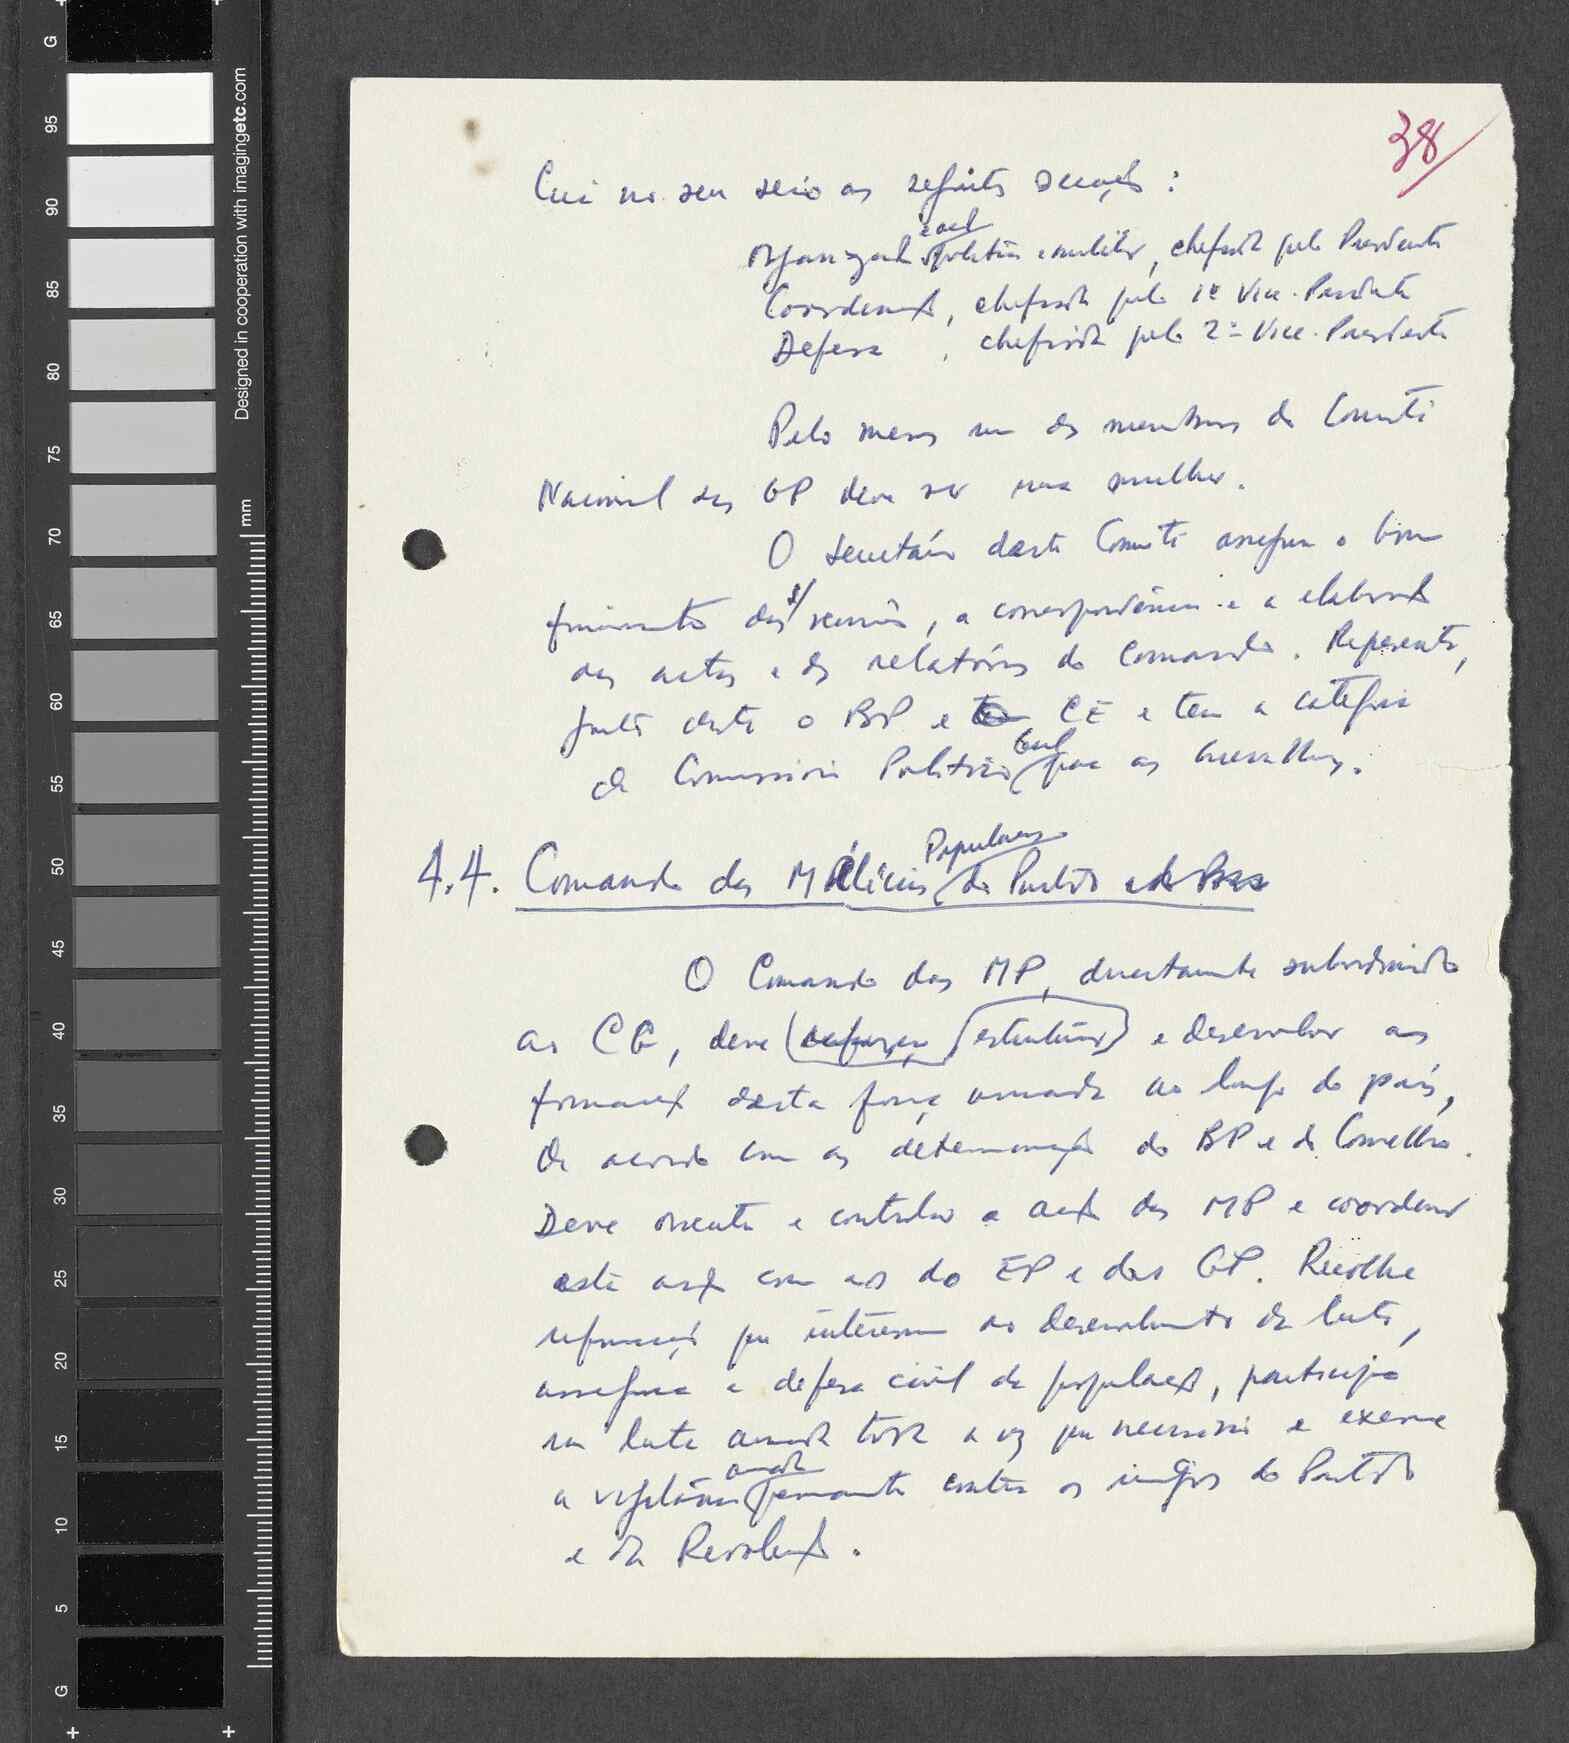 38
Cria no seu seio as seguintes secções:
Organização e acção política e militar, chefiada pelo Presidente
Coordenação, chefiada pelo 1º Vice-Presidente
Defesa, chefiada pelo 2º Vice-Presidente
Pelo menos um dos membros do Comité
Nacional das GP deve ser uma mulher.
O secretário deste Comité assegura o bom
funcionamento das reuniões, a correspondência e a elaboração
das actas e dos relatórios do Comando. Representa,
junto deste o BP e CE e tem a categoria
de Comissário Político Geral para as Guerrilhas.
4.4. Comando das Milícias Populares do Partido
O Comando das MP, directamente subordinado
ao CG, deve estruturar e desenvolver as
formações desta força armada ao longo do país,
de acordo com as determinações do BP e do Conselho.
Deve orientar e controlar a acção das MP e coordenar
esta acção com as do EP e das GP. Recolhe
informações que interessam ao desenvolvimento da luta,
assegura a defesa civil da população, participa
na luta armada toda a vez que necessário e exerce
a vigilância armada permanente contra os inimigos do Partido
e da Revolução.
Designed in cooperation with imagingetc.com
mm
G
95
90
85
80
75
70
65
60
55
50
45
40
35
30
25
20
15
10
5
G